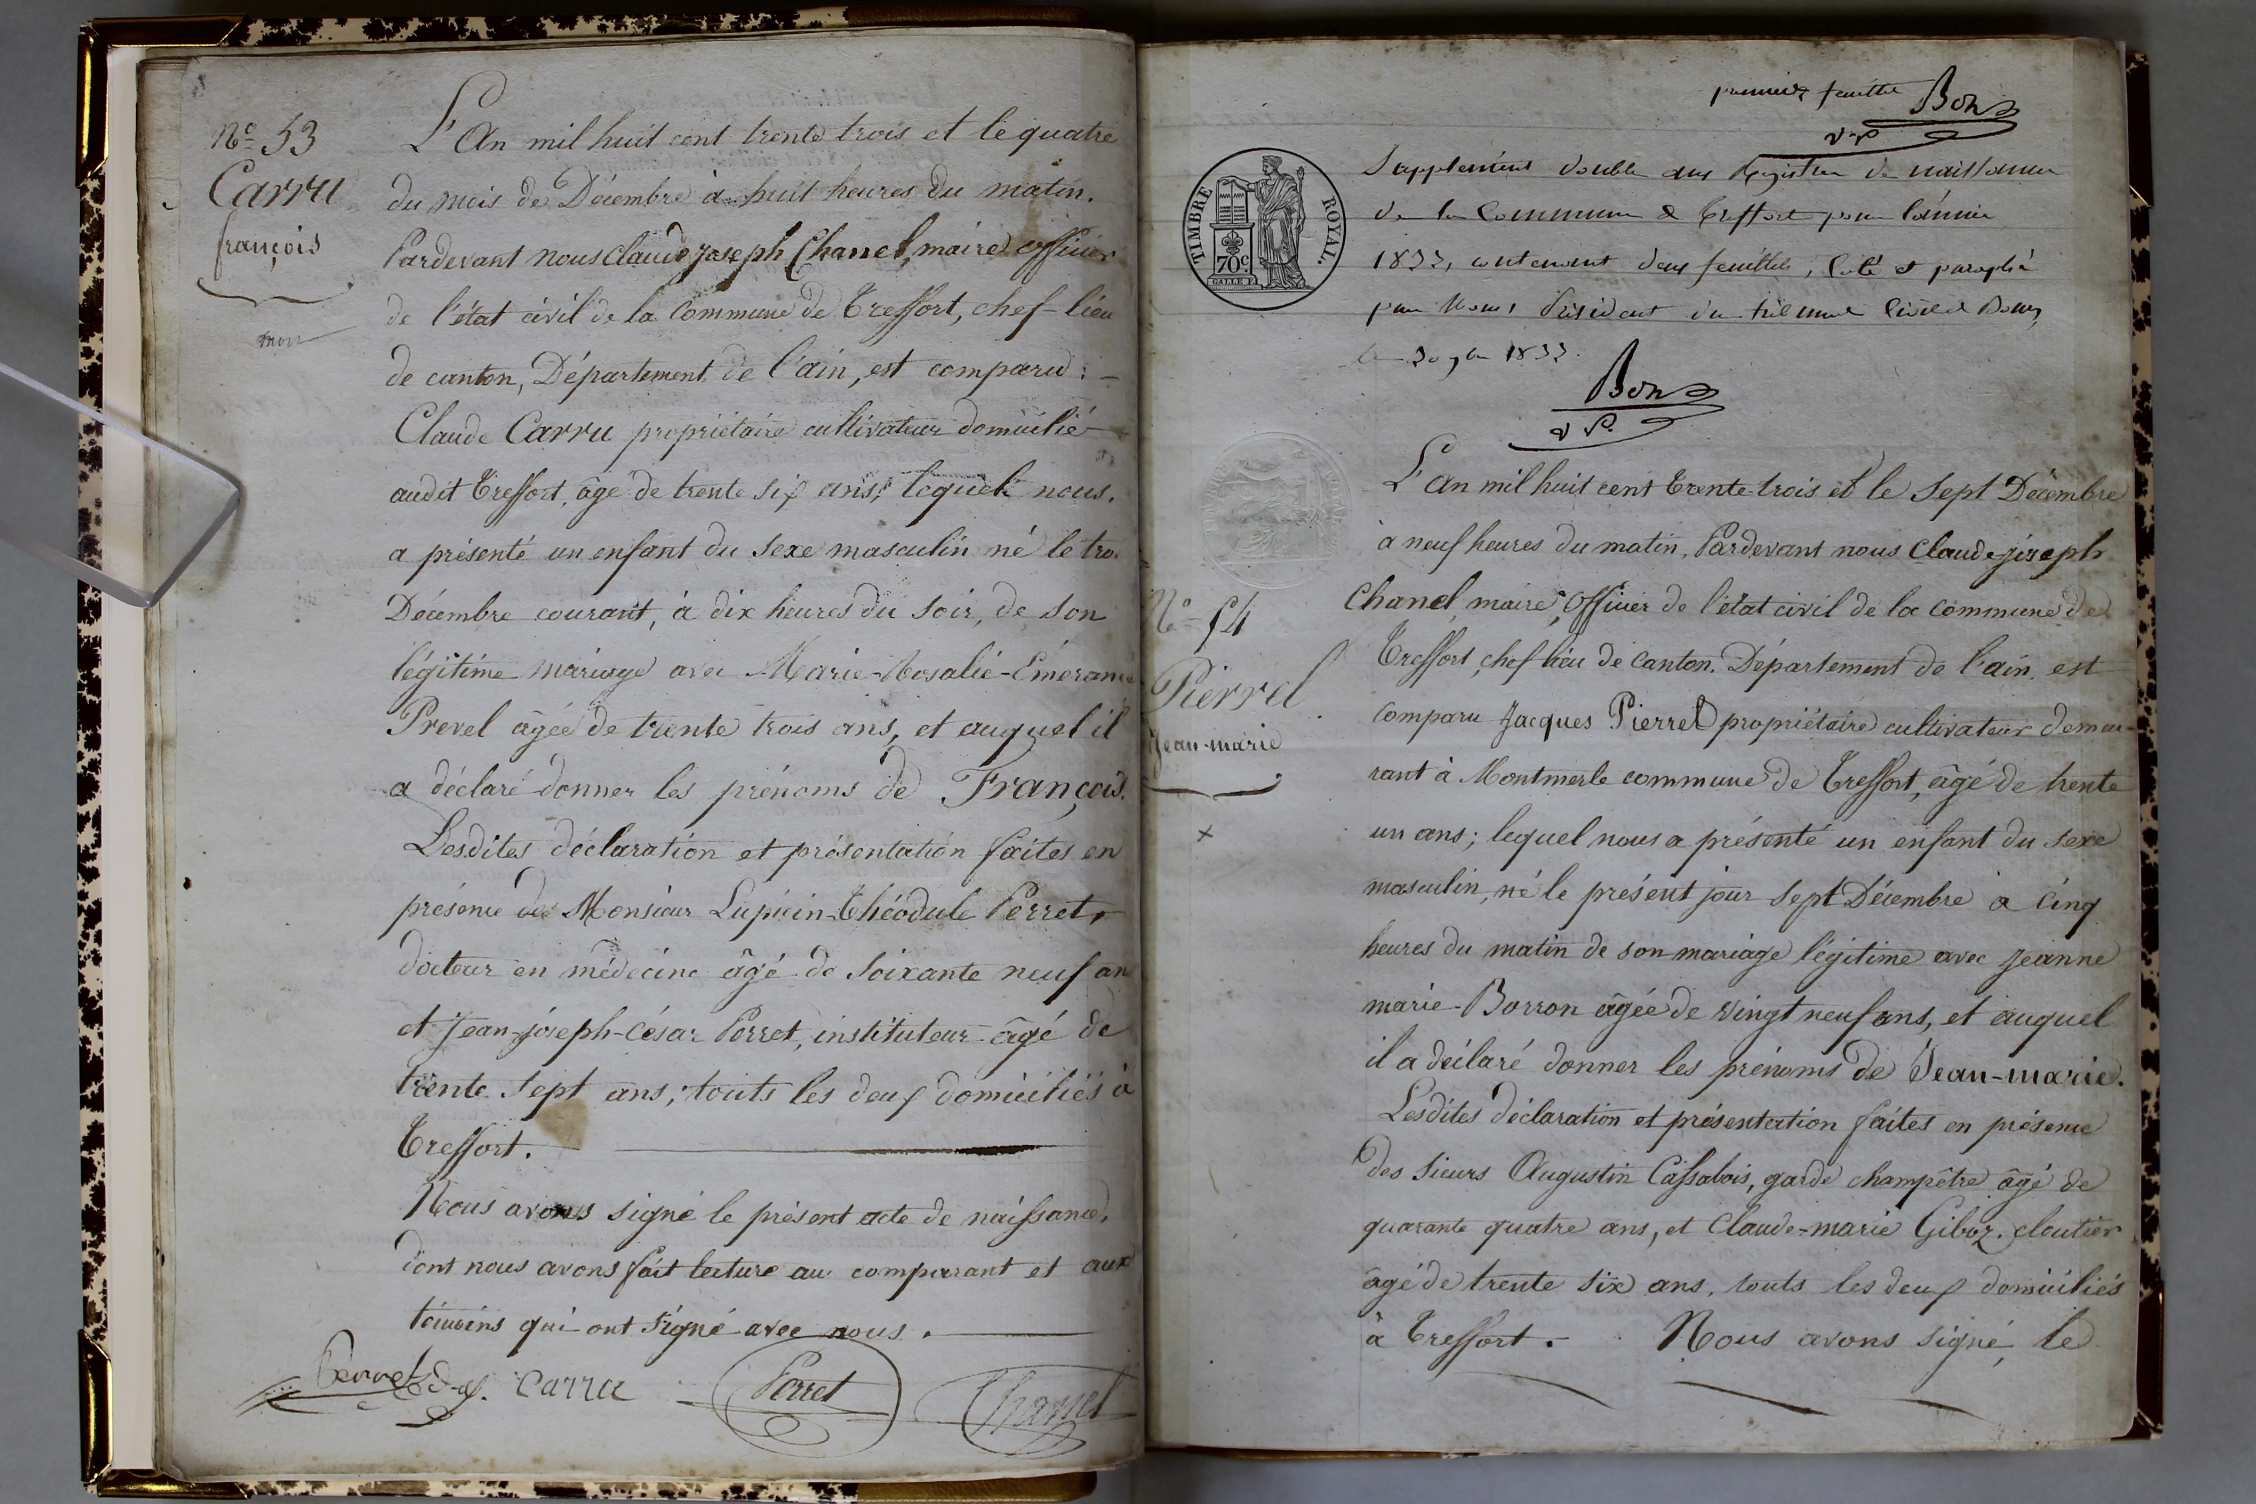 Nº 53
Carru
françois
mort
L'An mil huit cent trente trois et le quatre
du mois de Décembre à huit heures du matin.
Pardevant nous Claude joseph Chanel, maire officier
de l'état civil de la Commune de Treffort, chef-lieu
de canton, Département de l'ain, est comparu :
Claude Carru propriétaire cultivateur domicilié
audit Treffort, âge de trente six ans, lequel nous
a présenté un enfant du sexe masculin né le trois
Décembre courant, à dix heures du soir, de son
légitime mariage avec Marie-Rosalie-
Prevel âgée de trente trois ans, et auquel il
a déclaré donner les prénoms de François.
Lesdites déclaration et présentation faites en
présence de Monsieur Lupicin-Théodule Perret,
docteur en médecine âgé de soixante neuf an
et Jean-joseph-César Perret, instituteur âgé de
trente sept ans, touts les deux domiciliés à
Treffort.
Nous avons signé le présent acte de naissance,
dont nous avons fait lecture au comparant et aux
témoins qui ont signé avec nous.
Perret Carru Perret Chanel
premier feuillet Bon
vp
TIMBRE ROYAL.
70c.
Supplément double aux Registres de naissances
de la Commune de Treffort pour l'année
1833, contenant deux feuillets, Coté et paraphé
par Nous Président du tribunal Civil de Bourg
le 30 9bre 1833.
Bon
vp.
L'An mil huit cent trente trois et le sept Décembre
à neuf heures du matin, Pardevant nous Claude-joseph
Chanel, maire, Officier de l'état civil de la commune de
Treffort, chef lieu de canton, Département de l'ain, est
comparu Jacques Pierrel propriétaire cultivateur demeu-
rant à Montmerle commune de Treffort, âgé de trente
un ans ; lequel nous a présenté un enfant du sexe
masculin, né le présent jour sept Décembre à cinq
heures du matin de son mariage légitime avec Jeanne
marie-Borron âgée de vingt neuf ans, et auquel
il a déclaré donner les prénoms de Jean-marie.
Lesdites déclaration et présentation faites en présence
des sieurs Augustin Cassabois, garde champêtre âgé de
quarante quatre ans, et Claude-marie Giboz, cloutier
âgé de trente six ans, touts les deux domiciliés
à Treffort. Nous avons signé le
Nº 54
Pierrel
Jean-marie